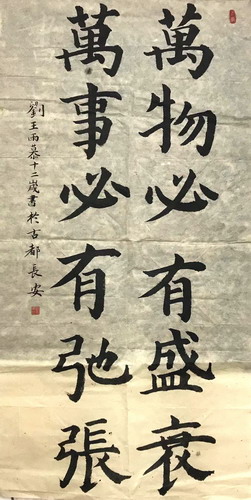 萬物必有盛衰
萬事必有弛張
劉王雨慕十二歲書於古都長安